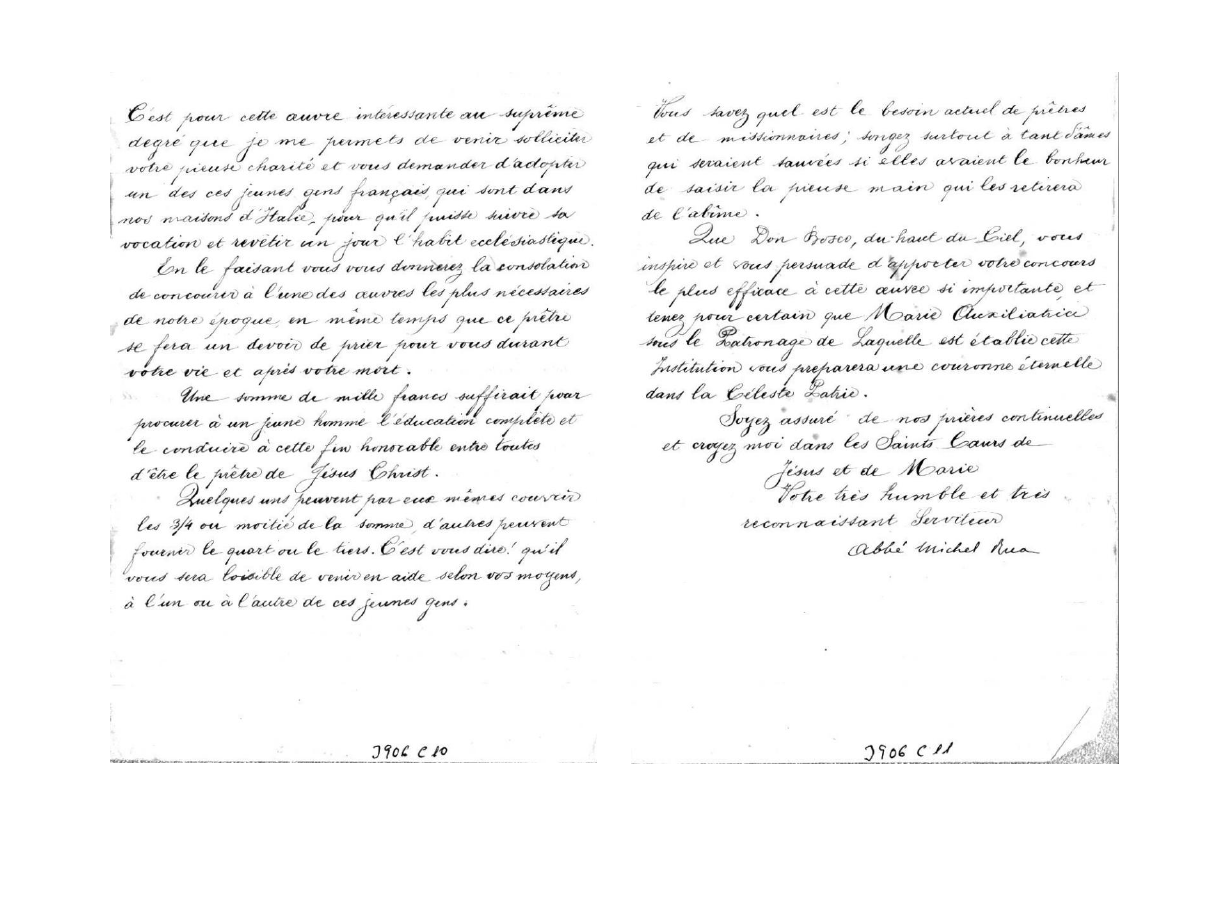 C'est pour cette œuvre intéressante au suprême
degré que je me permets de venir solliciter
votre pieuse charité et vous demander d'adopter
un des ces jeunes gens français, qui sont dans
nos maisons d'Italie, pour qu'il puisse suivre sa
vocation et revêtir un jour l'habit ecclésiastique.
En le faisant vous vous donnerez la consolation
de concourir à l'une des œuvres les plus nécessaires
de notre époque, en même temps que ce prêtre
se fera un devoir de prier pour vous durant
votre vie et après votre mort.
Une somme de mille francs suffirait pour
procurer à un jeune homme l'éducation complète et
le conduire à cette fin honorable entre toutes
d'être le prêtre de Jésus Christ.
Quelques uns peuvent par eux mêmes couvrir
les 3/4 ou moitié de la somme, d'autres peuvent
fournir le quart ou le tiers. C'est vous dire! qu'il
vous sera loisible de venir en aide selon vos moyens,
à l'un ou à l'autre de ces jeunes gens.
J906 C 10
Vous savez quel est le besoin actuel de prêtres
et de missionnaires; songez surtout à tant d'âmes
qui seraient sauvées si elles avaient le bonheur
de saisir la pieuse main qui les retirera
de l'abîme.
Que Don Bosco, du haut du Ciel, vous
inspire et vous persuade d'apporter votre concours
le plus efficace à cette œuvre si importante, et
tenez pour certain que Marie Auxiliatrice
sous le Patronage de Laquelle est établie cette
Institution vous preparera une couronne éternelle
dans la Céleste Patrie.
Soyez assuré de nos prières continuelles
et croyez moi dans les Saints Cœurs de
Jésus et de Marie
Votre très humble et très
reconnaissant Serviteur
Abbé Michel Rua
J906 C 11